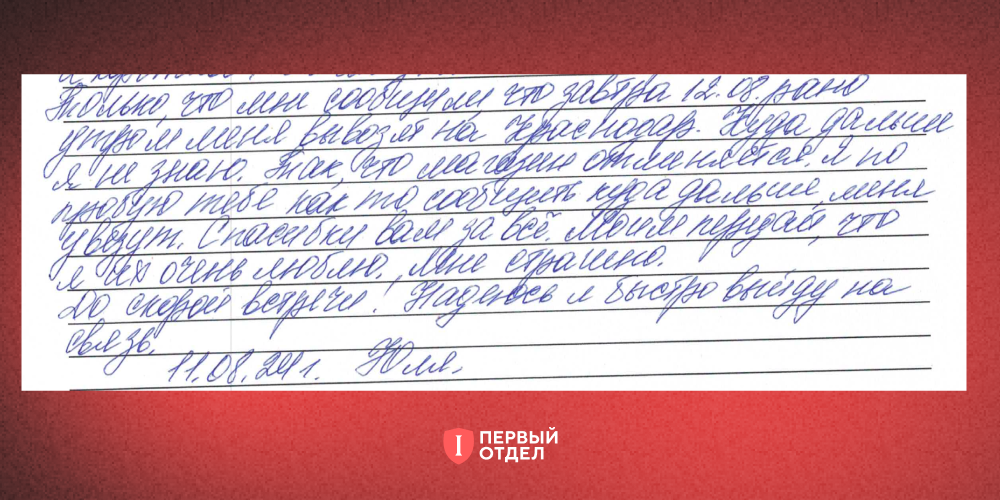 Только, что мне сообщили, что завтра 12.08. рано
утром меня вывозят на Краснодар. Куда дальше
я не знаю. Так, что магазин отменяется. Я по
пробую тебе как то сообщить куда дальше, меня
увезут. Спасибки вам за всё. Моим передай, что
я их очень люблю. Мне страшно.
До скорой встречи! Надеюсь я быстро выйду на
связь.
11.08.24г. Юля.
ПЕРВЫЙ
ОТДЕЛ